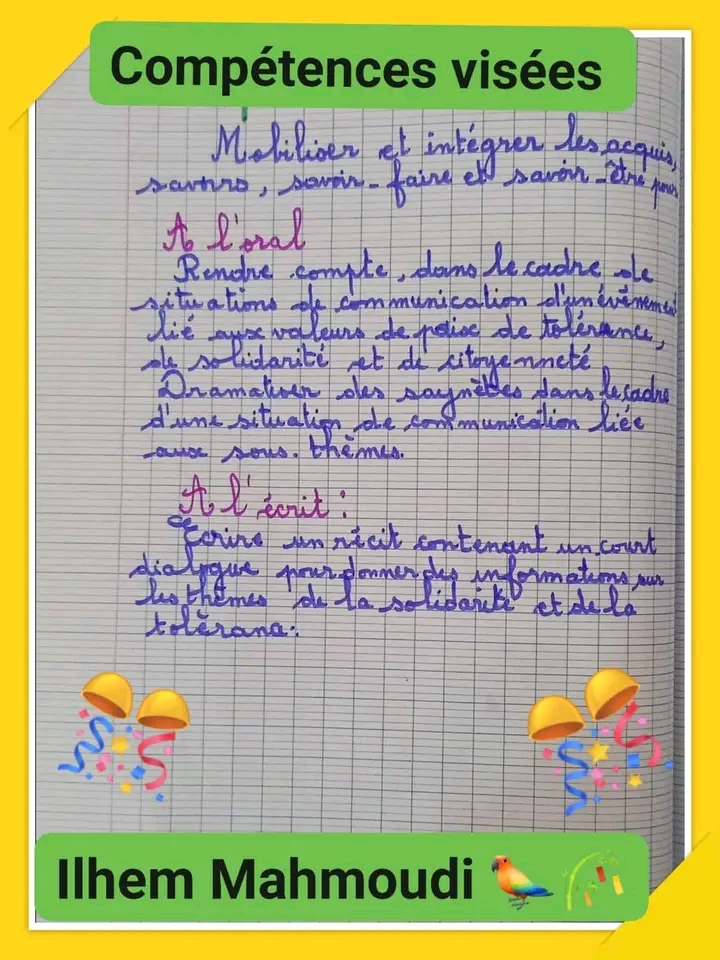 Compétences visées
Mobiliser et intégrer les acquis,
savoirs, savoir-faire et savoir-être pour
A l'oral
Rendre compte, dans le cadre de
situations de communication d'un événement
lié aux valeurs de paix de tolérance,
de solidarité et de citoyenneté
Dramatiser des saynètes dans le cadre
d'une situation de communication liée
aux sous-thèmes.
A l'écrit :
Ecrire un récit contenant un court
dialogue pour donner des informations sur
les thèmes de la solidarité et de la
tolérance.
Ilhem Mahmoudi